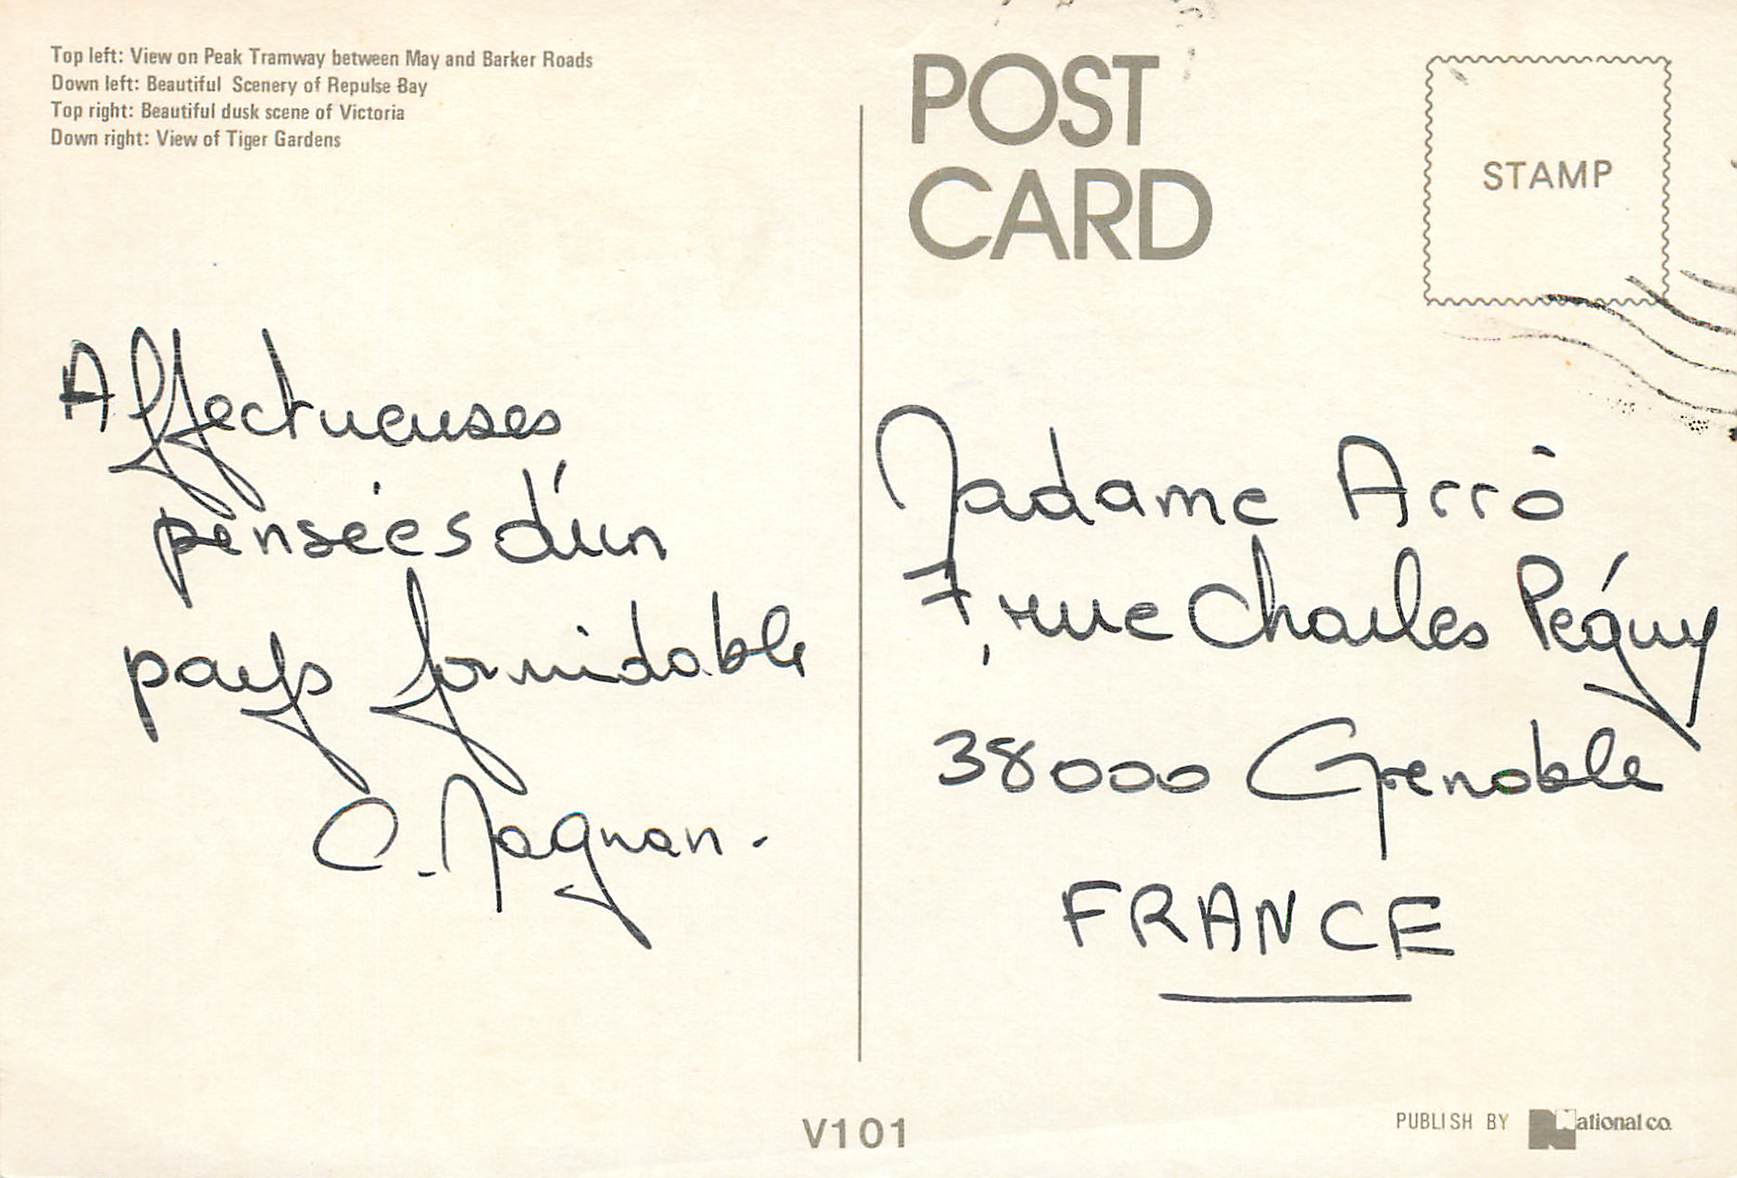 Top left: View on Peak Tramway between May and Barker Roads
Down left: Beautiful Scenery of Repulse Bay
Top right: Beautiful dusk scene of Victoria
Down right: View of Tiger Gardens
POST
CARD
STAMP
Affectueuses
pensées d'un
pays formidable
C. Magnan.
Madame Arrò
7, rue Charles Péguy
38000 Grenoble
FRANCE
V101
PUBLISH BY National co.